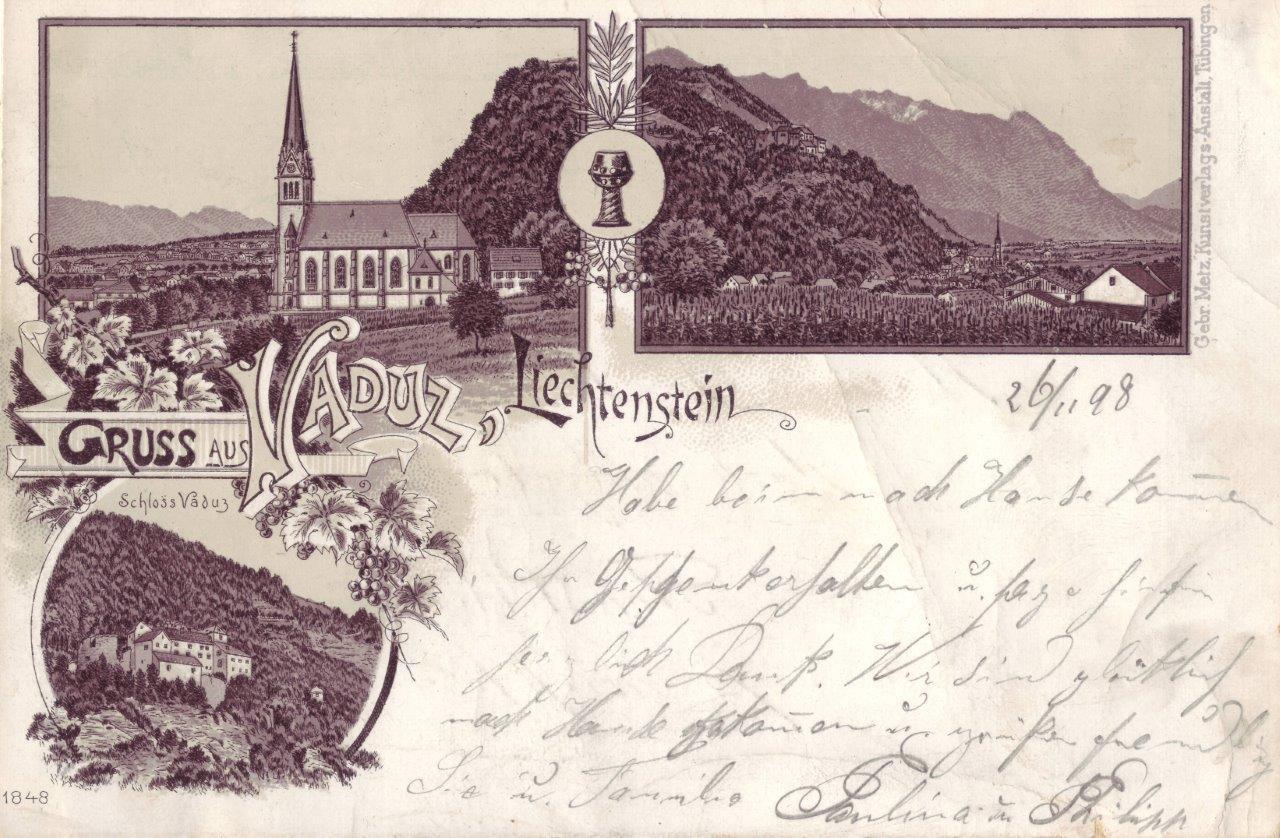 GRUSS AUS VADUZ, Liechtenstein
Schloss Vaduz
Gebr. Metz, Kunstverlags-Anstalt, Tübingen
26/11 98
Habe beim nach Hause kommen
Ihr Geschenk erhalten u. sage hiefür
herzlich Dank. Wir sind glücklich
nach Hause gekommen u. grüßen
Sie u. Familie
Paulina u Philipp
1848